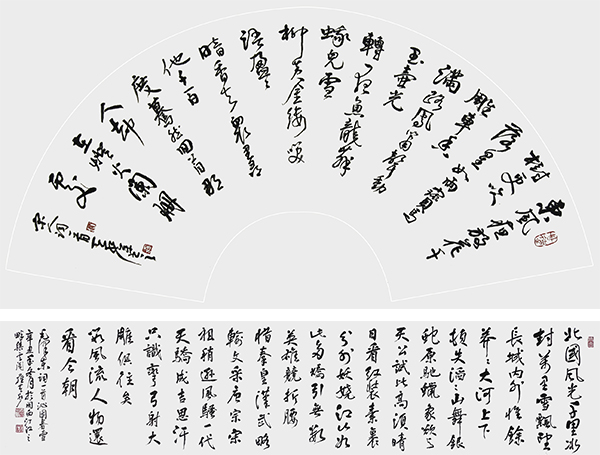 東風夜放花千
樹更吹
落星如雨寶馬
雕車香
滿路鳳簫聲動
玉壺光
轉一夜魚龍舞
蛾兒雪
柳黃金縷笑
語盈盈
暗香去眾裏尋
他千百
度驀然回首那
人卻
在燈火闌珊
處
宋詞一首
北國風光千里冰
封萬里雪飄望
長城內外惟餘
莽莽大河上下
頓失滔滔山舞銀
蛇原馳蠟象欲與
天公試比高須晴
日看紅裝素裹
分外妖嬈江山如
此多嬌引無數
英雄競折腰
惜秦皇漢武略
輸文采唐宗宋
祖稍遜風騷一代
天驕成吉思汗
只識彎弓射大
雕俱往矣
數風流人物還
看今朝
毛澤東詞一首沁園春雪